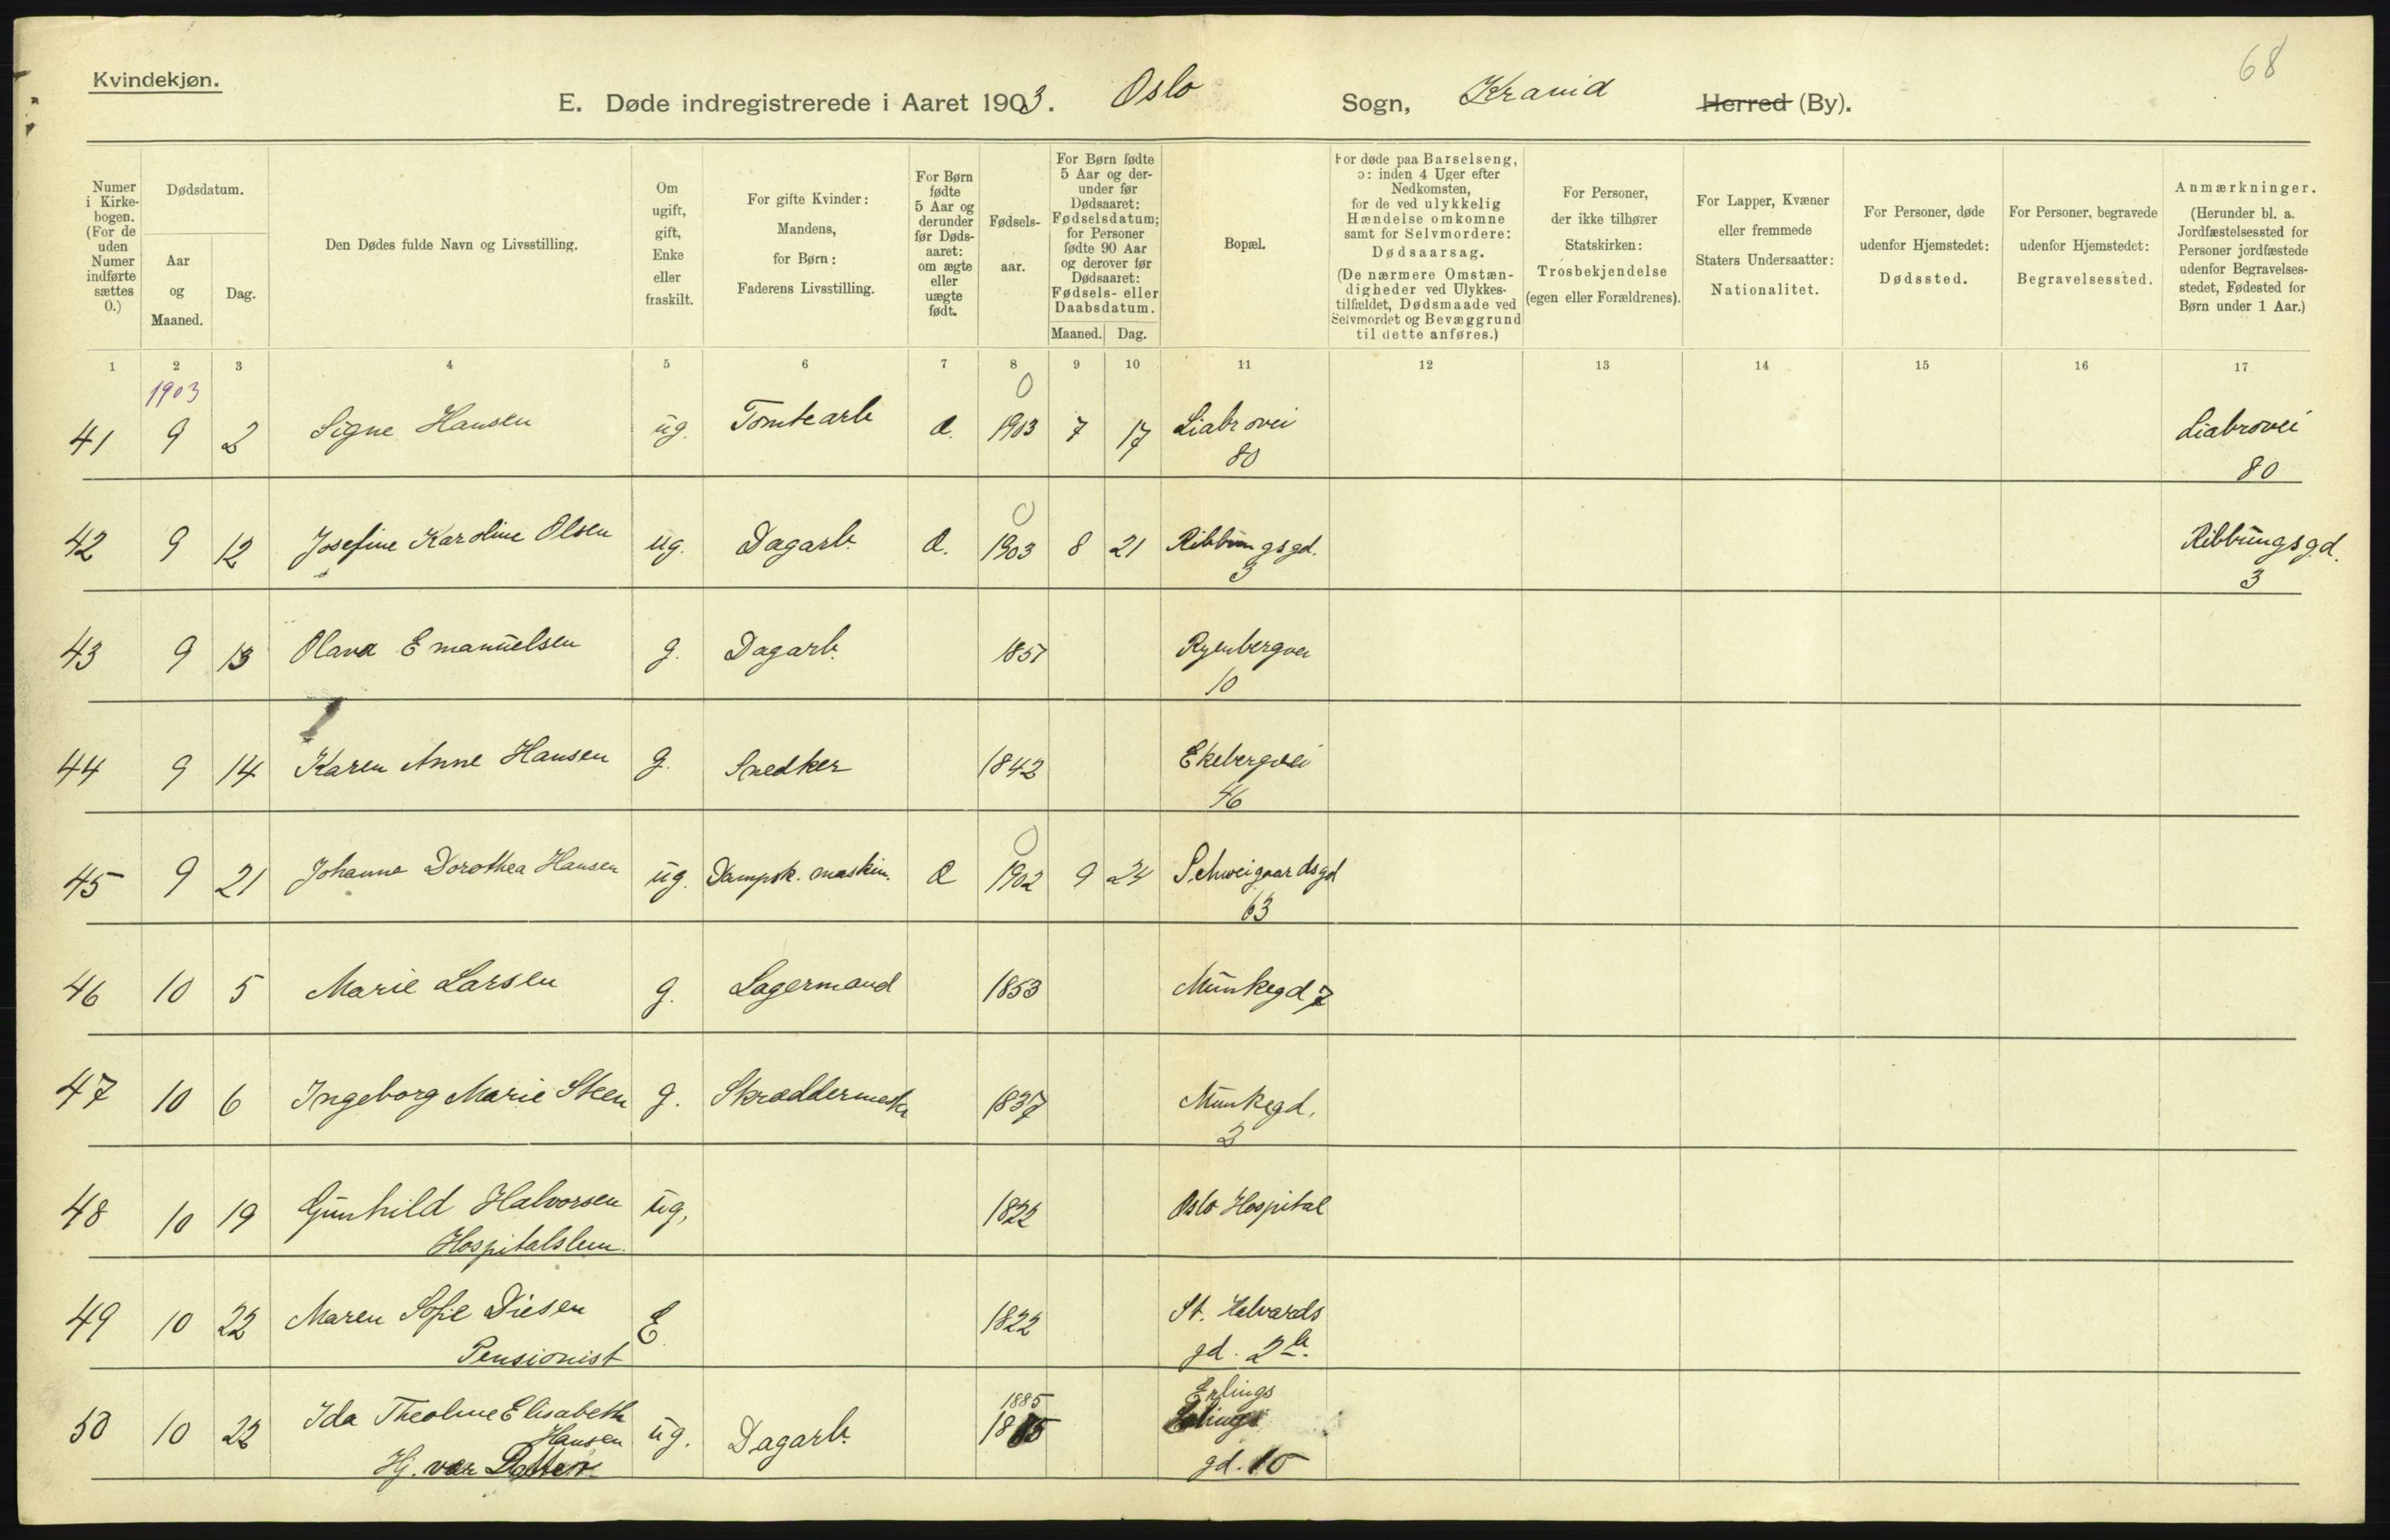 68
Kvindekjøn.
E. Døde indregistrerede i Aaret 1903. Oslo Sogn, Krania Herred (By).
Numer i Kirkebogen. (For de uden Numer indførte sættes 0.)
Dødsdatum.
Aar og Maaned.
Dag.
Den Dødes fulde Navn og Livsstilling.
Om ugift, gift, Enke eller fraskilt.
For gifte Kvinder: Mandens, for Børn: Faderens Livsstilling.
For Børn fødte 5 Aar og derunder før Dødsaaret: om ægte eller uægte født.
Fødselsaar.
For Børn fødte 5 Aar og derunder før Dødsaaret: Fødselsdatum; for Personer fødte 90 Aar og derover før Dødsaaret: Fødsels- eller Daabsdatum.
Maaned. Dag.
Bopæl.
For døde paa Barselseng, ɔ: inden 4 Uger efter Nedkomsten, for de ved ulykkelig Hændelse omkomne samt for Selvmordere: Dødsaarsag. (De nærmere Omstændigheder ved Ulykkestilfældet, Dødsmaade ved Selvmordet og Bevæggrund til dette anføres.)
For Personer, der ikke tilhører Statskirken: Trosbekjendelse (egen eller Forældrenes).
For Lapper, Kvæner eller fremmede Staters Undersaatter: Nationalitet.
For Personer, døde udenfor Hjemstedet: Dødssted.
For Personer, begravede udenfor Hjemstedet: Begravelsessted.
Anmærkninger. (Herunder bl. a. Jordfæstelsessted for Personer jordfæstede udenfor Begravelsesstedet, Fødested for Børn under 1 Aar.)
1 2 3 4 5 6 7 8 9 10 11 12 13 14 15 16 17
1903 0
41 9 2 Signe Hansen ug. Tomtearb Æ. 1903 7 17 Liabrovei 80 Liabrovei 80
0
42 9 12 Josefine Karoline Olsen ug. Dagarb. Æ. 1903 8 21 Ribbungsgd. 3 Ribbungsgd. 3
43 9 13 Olava Emanuelsen g. Dagarb. 1857 Ryenbergvei 10
44 9 14 Karen Anne Hansen g. Snedker 1842 Ekebergvei 46
0
45 9 21 Johanne Dorothea Hansen ug. Dampsk. maskin. Æ 1902 9 24 Schweigaardsgd 63
46 10 5 Marie Larsen g. Lagermand 1853 Munkegd 7
47 10 6 Ingeborg Marie Steen g. Skræddermestr 1837 Munkegd. 2
48 10 19 Gunhild Halvorsen ug. 1822 Oslo Hospital
Hospitalslem.
49 10 22 Maren Sofie Diesen E. 1822 St. Halvards
Pensionist gd. 2b.
1885 Erlings
50 10 22 Ida Theoline Elisabeth Hansen ug. Dagarb. 1885
Hj. vær. Datter gd. 15